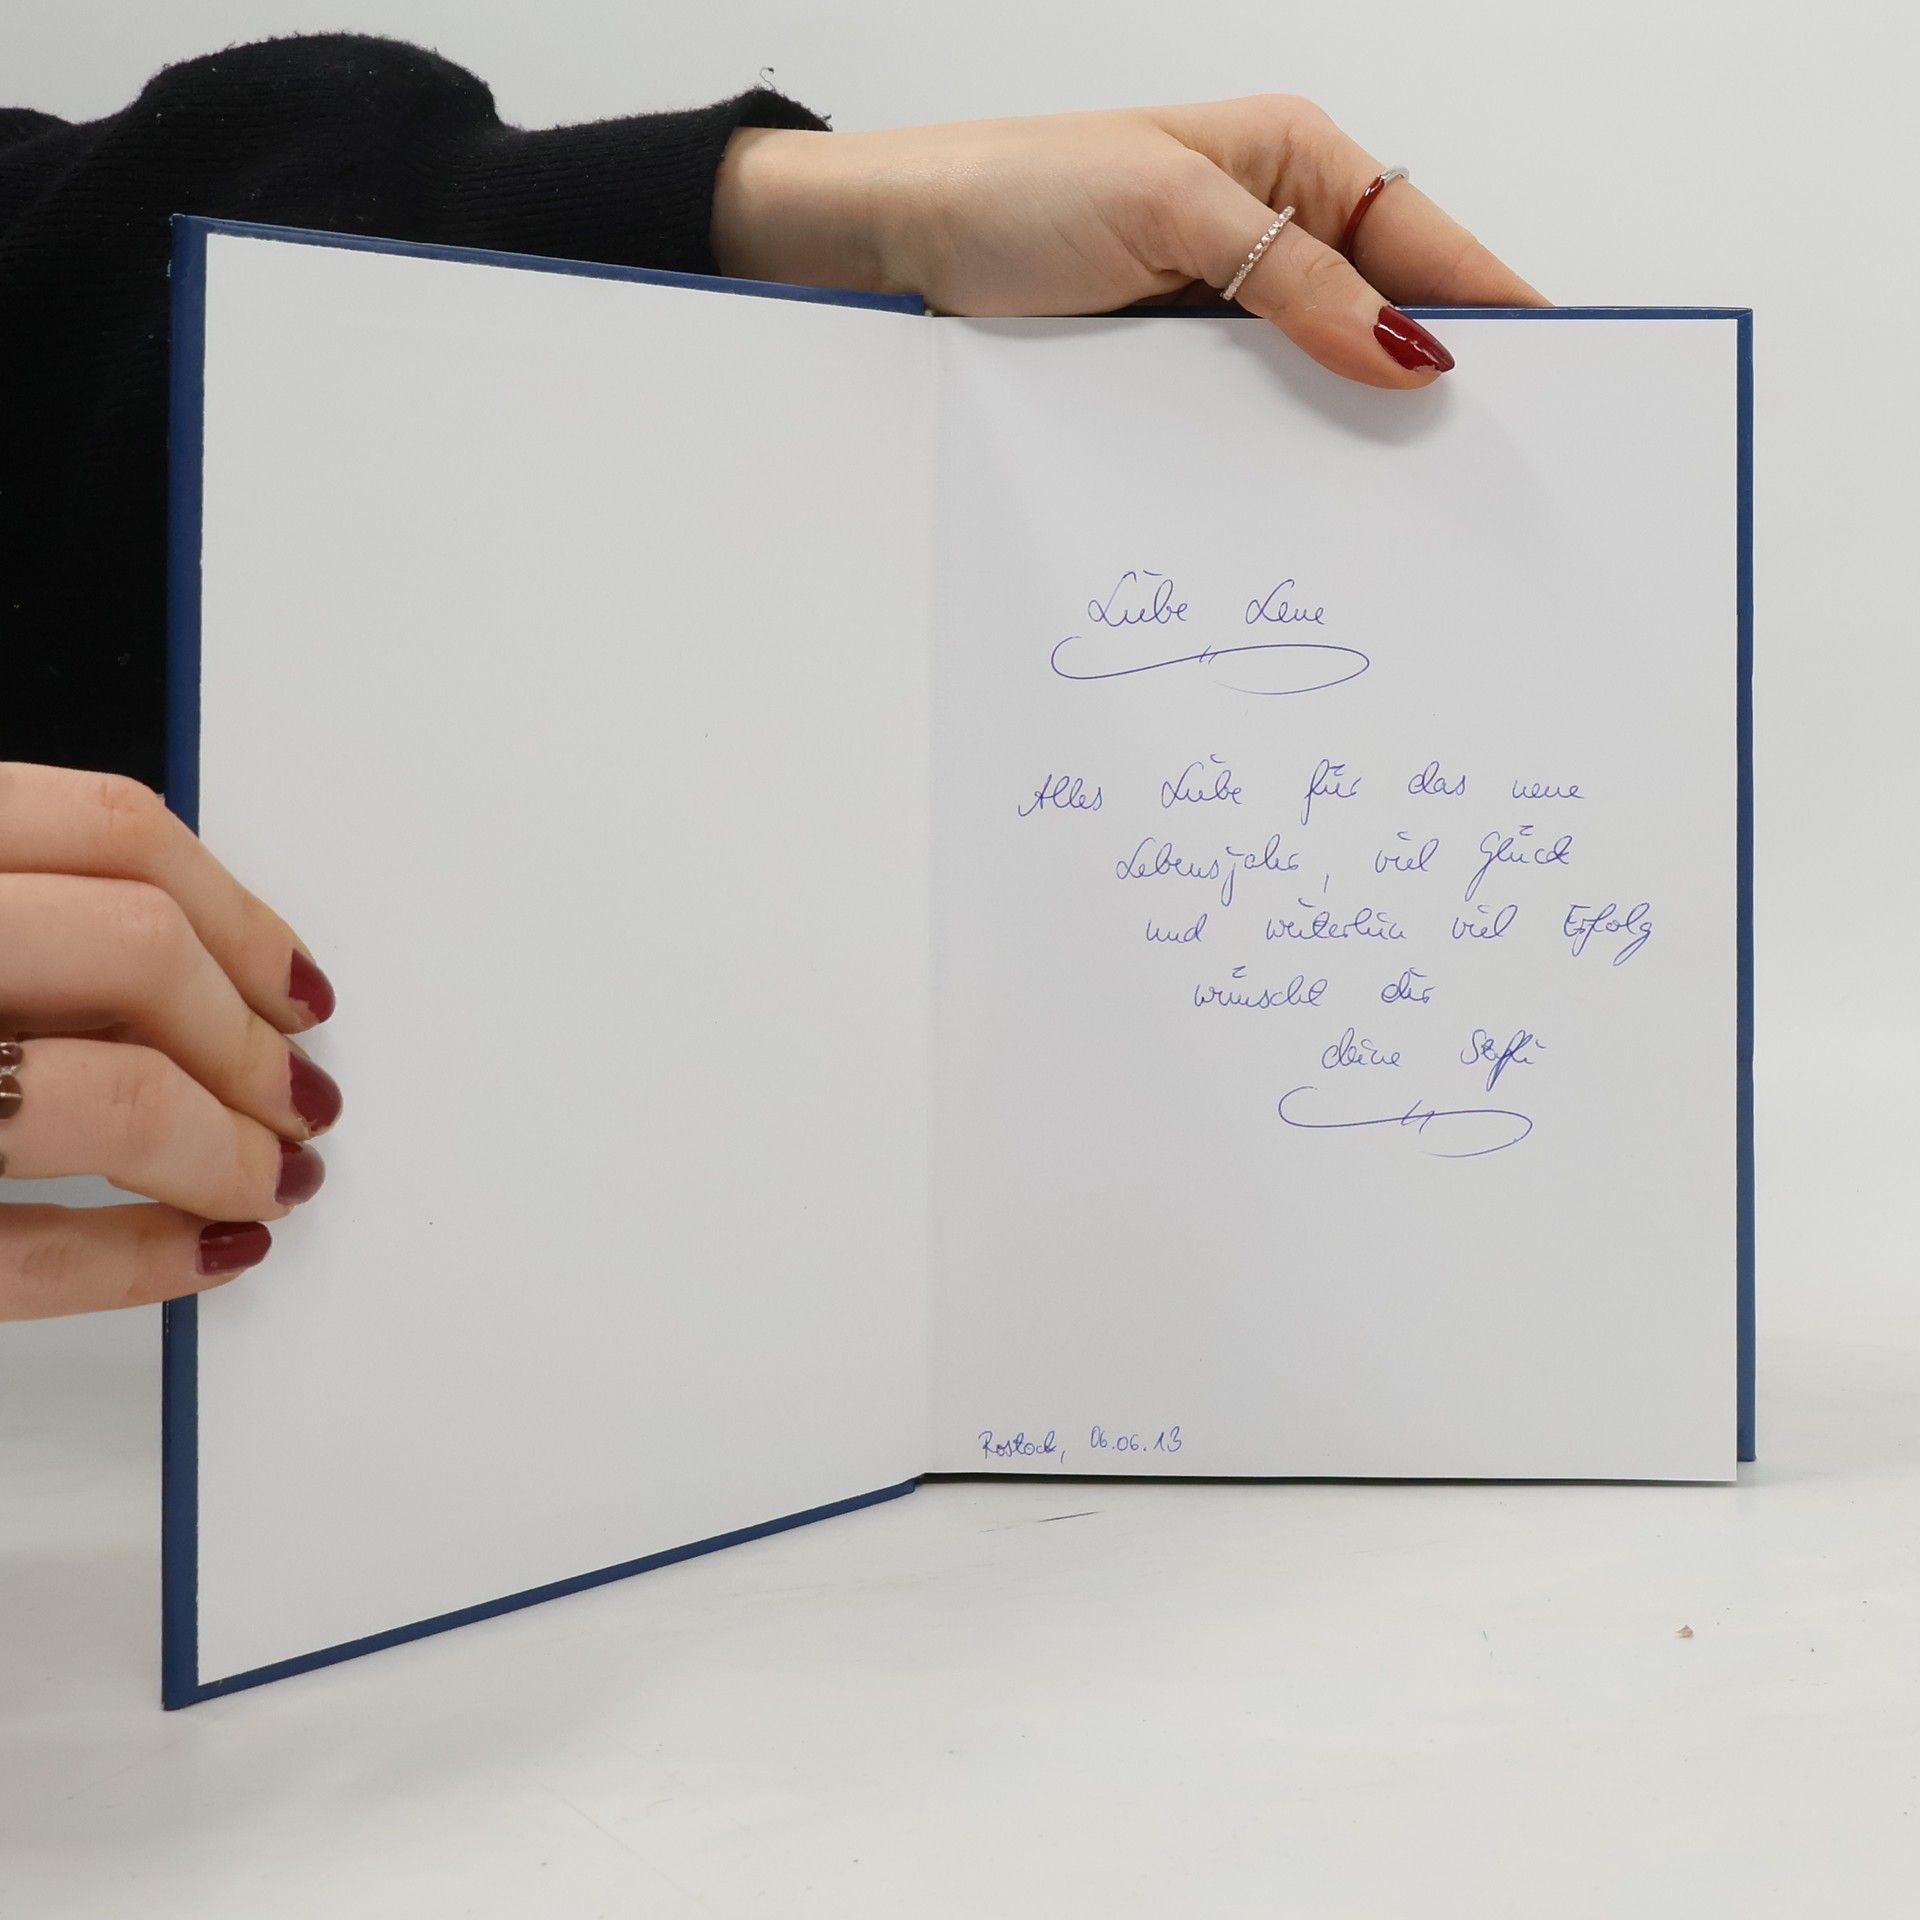 Liebe Lene
Alles Liebe für das neue
Lebensjahr, viel Glück
und weiterhin viel Erfolg
wünscht dir
deine Steffi
Rostock, 06.06.13